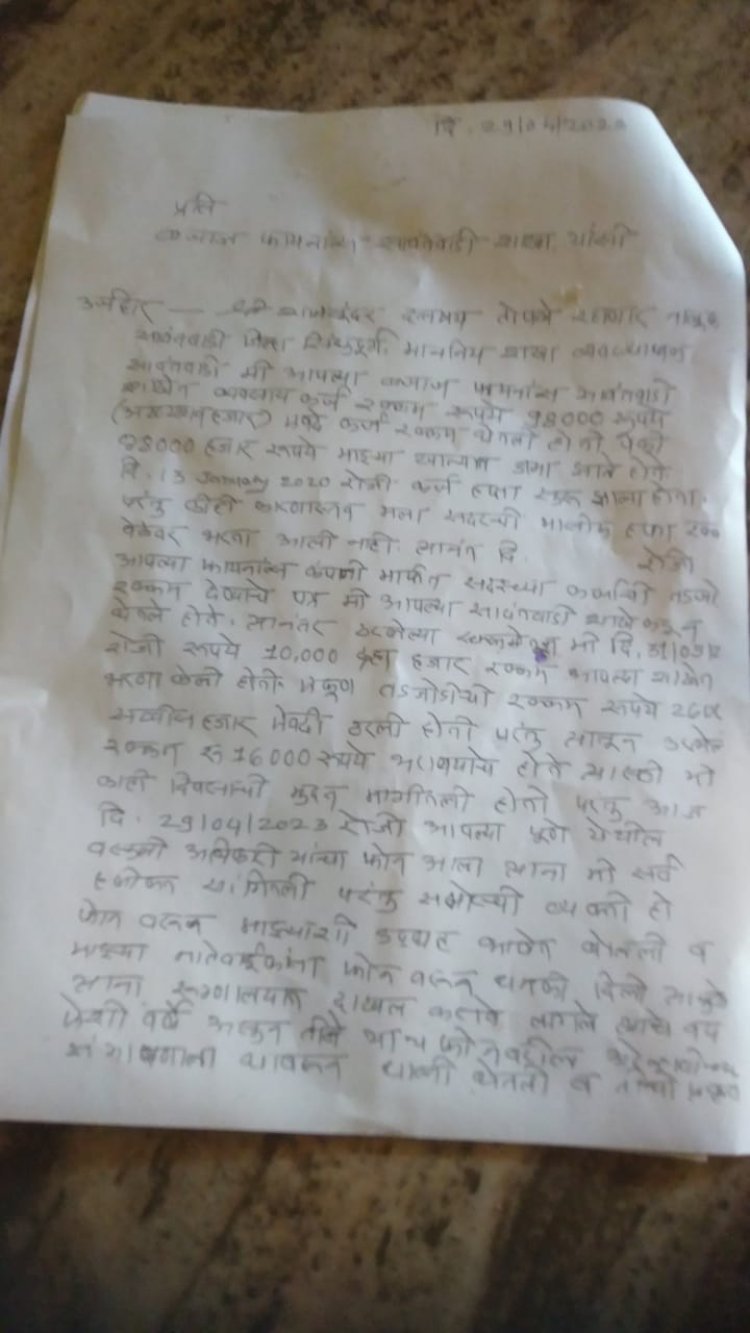 दि. 29/04/202
प्रति
बजाज फायनान्स सावंतवाडी शाखा यांसी
अर्जदार — श्री
सावंतवाडी जिल्हा सिंधुदुर्ग. माननिय शाखा व्यवस्थापक
सावंतवाडी मी आपल्या बजाज फायनान्स सावंतवाडी
शाखेत व्यवसाय कर्ज रक्कम रूपये 98000 रूपये
हजार) कर्ज रक्कम घेतली होती पैकी
हजार रूपये माझ्या खात्यात जमा झाले होते
दि. 13 January 2020 रोजी कर्ज हप्ता सुरू झाला होता.
परंतु काही कारणास्तव मला सदरची मासीक हप्ता रक्कम
वेळेवर भरता आली नाही. त्यानंतर दि. रोजी
आपल्या फायनान्स कंपनी मार्फत सदरच्या कर्जाची तडजोड
रक्कम देण्याचे पत्र मी आपल्या सावंतवाडी शाखेकडून
घेतले होते. त्यानंतर ठरलेल्या मी दि. 31/03/2
रोजी रूपये 10,000 दहा हजार रक्कम आपल्या शाखेत
भरणा केली होती. एकूण तडजोडीची रक्कम रूपये
सव्वीस हजार ठरली होती परंतु त्यातून उरलेले
रक्कम रू 16000 रूपये भरावयाचे होते त्यासाठी मी
काही दिवसाची मुदत मागीतली होती परंतु आज
दि. 29/04/2023 रोजी आपल्या पुणे येथील
वसुली अधिकारी यांचा फोन आला त्यांना मी सर्व
हकीकत सांगितली परंतु समोरची व्यक्ती ही
फोन वरून माझ्याशी उद्धट भाषेत बोलली व
माझ्या नातेवाईकांना फोन वरून धमकी दिली त्यामुळे
त्यांना रूग्णालयात दाखल करावे लागले त्यांचे वय
वर्षे असून तीने फोनवरील
संभाषणाला घाबरून धास्ती घेतली व